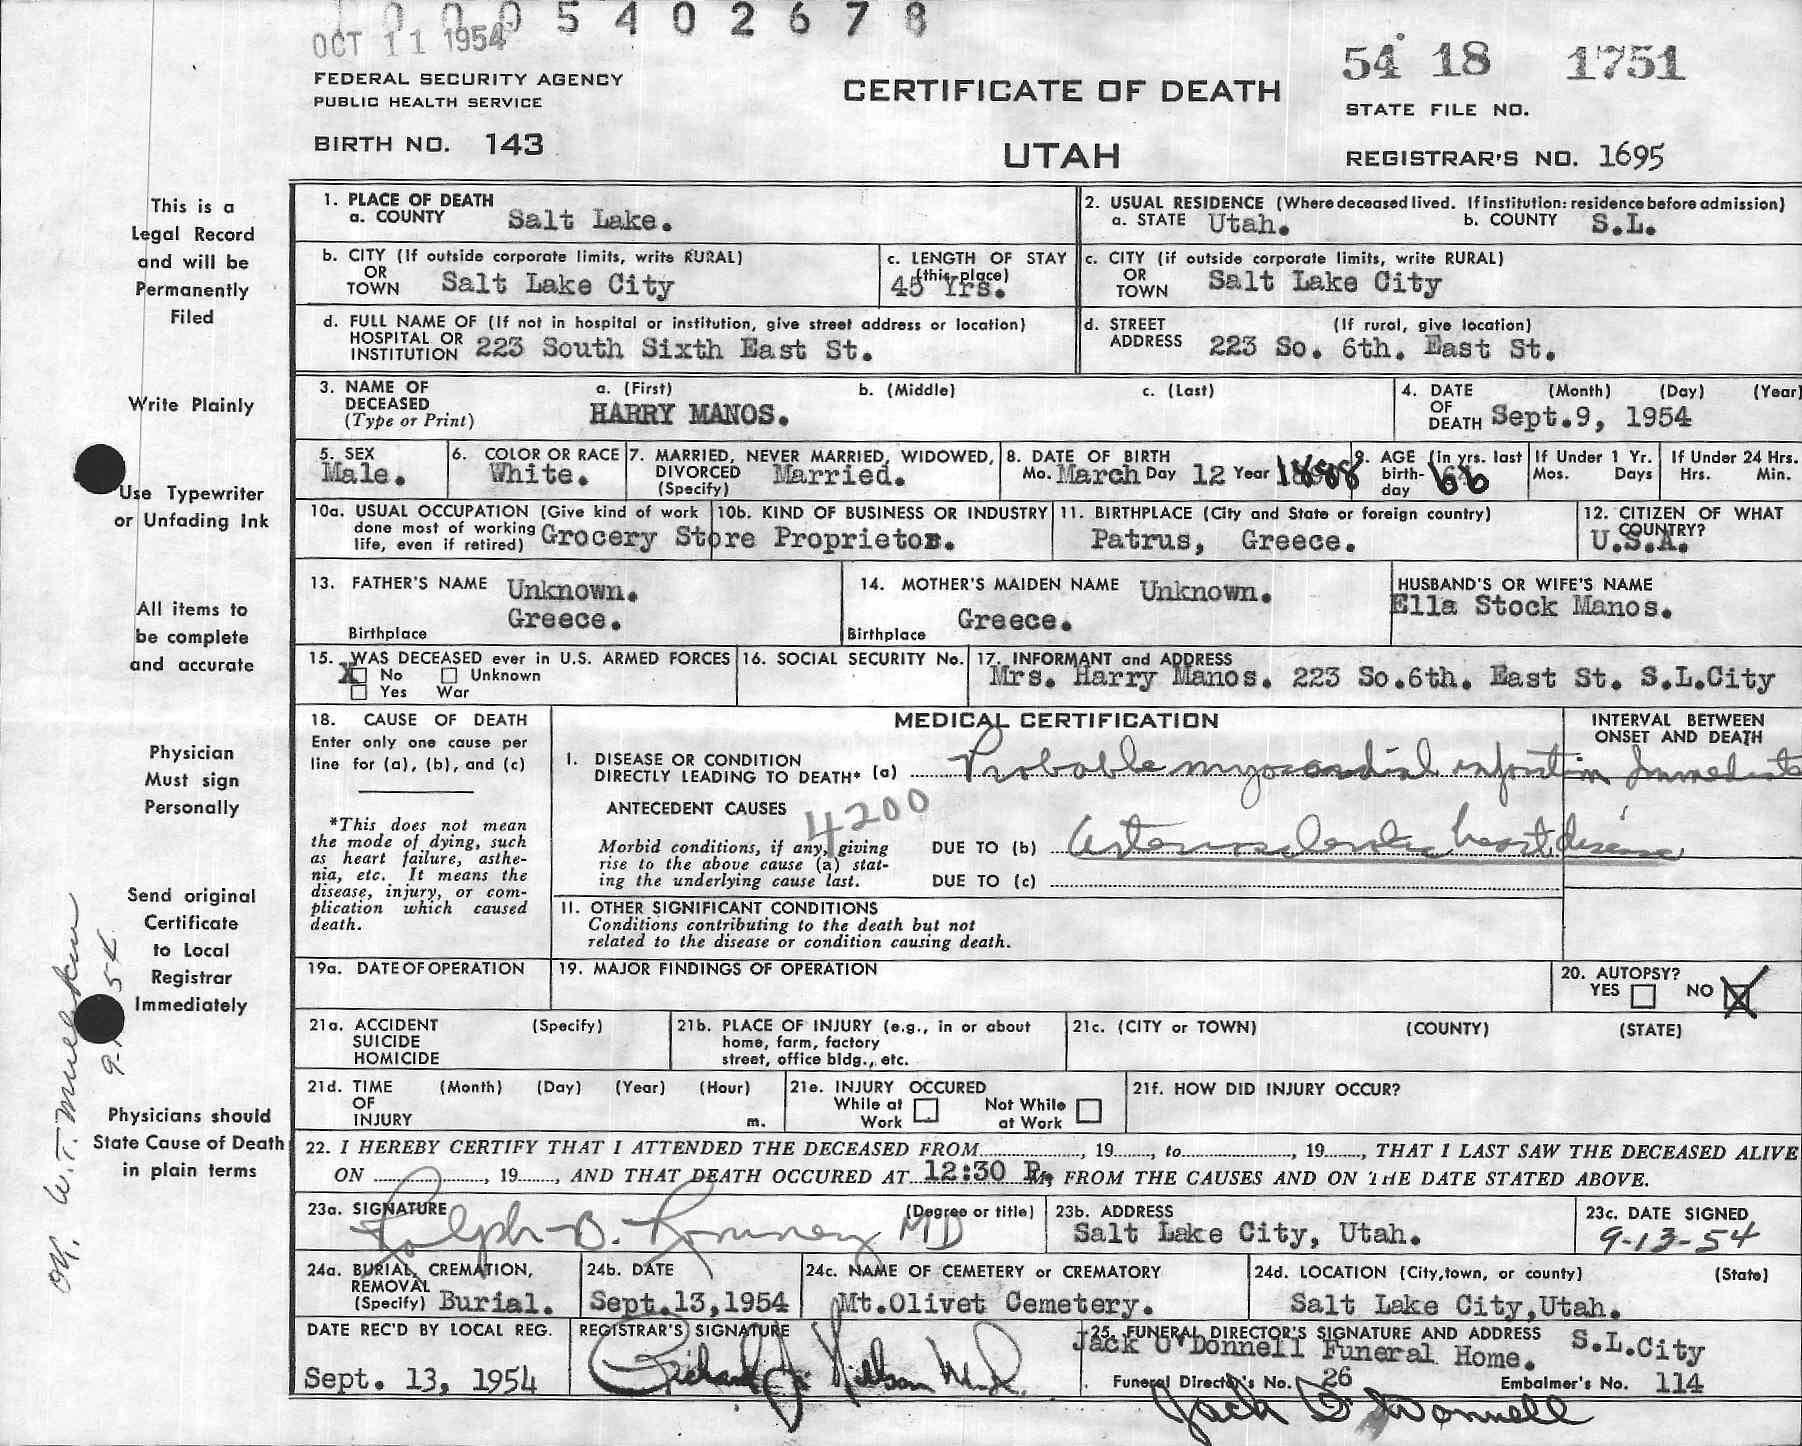 0 0 0 5 4 0 2 6 7 8
OCT 11 1954
54 18 1751
FEDERAL SECURITY AGENCY
PUBLIC HEALTH SERVICE
CERTIFICATE OF DEATH
STATE FILE NO.
BIRTH NO. 143
UTAH
REGISTRAR'S NO. 1695
This is a
Legal Record
and will be
Permanently
Filed
Write Plainly
Use Typewriter
or Unfading Ink
All items to
be complete
and accurate
Physician
Must sign
Personally
Send original
Certificate
to Local
Registrar
Immediately
Physicians should
State Cause of Death
in plain terms
OK. W.T.
1. PLACE OF DEATH
a. COUNTY Salt Lake.
2. USUAL RESIDENCE (Where deceased lived. If institution: residence before admission)
a. STATE Utah. b. COUNTY S.L.
b. CITY (If outside corporate limits, write RURAL)
OR
TOWN Salt Lake City
c. LENGTH OF STAY
(this place)
45 Yrs.
c. CITY (if outside corporate limits, write RURAL)
OR
TOWN Salt Lake City
d. FULL NAME OF (If not in hospital or institution, give street address or location)
HOSPITAL OR
INSTITUTION 223 South Sixth East St.
d. STREET (If rural, give location)
ADDRESS 223 So. 6th. East St.
3. NAME OF
DECEASED
(Type or Print)
a. (First) b. (Middle) c. (Last)
HARRY MANOS.
4. DATE (Month) (Day) (Year)
OF
DEATH Sept.9, 1954
5. SEX
Male.
6. COLOR OR RACE
White.
7. MARRIED, NEVER MARRIED, WIDOWED,
DIVORCED Married.
(Specify)
8. DATE OF BIRTH
Mo. March Day 12 Year 1888
9. AGE (in yrs. last
birth-
day 66
If Under 1 Yr.
Mos. Days
If Under 24 Hrs.
Hrs. Min.
10a. USUAL OCCUPATION (Give kind of work
done most of working
life, even if retired)
10b. KIND OF BUSINESS OR INDUSTRY
Grocery Store Proprietor.
11. BIRTHPLACE (City and State or foreign country)
Patrus, Greece.
12. CITIZEN OF WHAT
COUNTRY?
U.S.A.
13. FATHER'S NAME Unknown.
Greece.
Birthplace
14. MOTHER'S MAIDEN NAME Unknown.
Greece.
Birthplace
HUSBAND'S OR WIFE'S NAME
Ella Stock Manos.
15. WAS DECEASED ever in U.S. ARMED FORCES
X No Unknown
Yes War
16. SOCIAL SECURITY No.
17. INFORMANT and ADDRESS
Mrs. Harry Manos. 223 So.6th. East St. S.L.City
18. CAUSE OF DEATH
Enter only one cause per
line for (a), (b), and (c)
*This does not mean
the mode of dying, such
as heart failure, asthe-
nia, etc. It means the
disease, injury, or com-
plication which caused
death.
MEDICAL CERTIFICATION
INTERVAL BETWEEN
ONSET AND DEATH
I. DISEASE OR CONDITION
DIRECTLY LEADING TO DEATH* (a) Probable myocardial infarction Immediate
ANTECEDENT CAUSES
4200
Morbid conditions, if any, giving
rise to the above cause (a) stat-
ing the underlying cause last.
DUE TO (b) Arteriosclerotic heart disease
DUE TO (c)
II. OTHER SIGNIFICANT CONDITIONS
Conditions contributing to the death but not
related to the disease or condition causing death.
19a. DATE OF OPERATION
19. MAJOR FINDINGS OF OPERATION
20. AUTOPSY?
YES NO X
21a. ACCIDENT (Specify)
SUICIDE
HOMICIDE
21b. PLACE OF INJURY (e.g., in or about
home, farm, factory
street, office bldg., etc.
21c. (CITY or TOWN) (COUNTY) (STATE)
21d. TIME (Month) (Day) (Year) (Hour)
OF
INJURY m.
21e. INJURY OCCURED
While at Not While
Work at Work
21f. HOW DID INJURY OCCUR?
22. I HEREBY CERTIFY THAT I ATTENDED THE DECEASED FROM, 19, to, 19, THAT I LAST SAW THE DECEASED ALIVE
ON, 19, AND THAT DEATH OCCURED AT 12:30 P. M., FROM THE CAUSES AND ON THE DATE STATED ABOVE.
23a. SIGNATURE (Degree or title)
Ralph B. Romney MD
23b. ADDRESS
Salt Lake City, Utah.
23c. DATE SIGNED
9-13-54
24a. BURIAL, CREMATION,
REMOVAL
(Specify) Burial.
24b. DATE
Sept.13,1954
24c. NAME OF CEMETERY or CREMATORY
Mt.Olivet Cemetery.
24d. LOCATION (City,town, or county) (State)
Salt Lake City,Utah.
DATE REC'D BY LOCAL REG.
Sept. 13, 1954
REGISTRAR'S SIGNATURE
Richard J. Nelson M.D.
25. FUNERAL DIRECTOR'S SIGNATURE AND ADDRESS S.L.City
Jack O'Donnell Funeral Home.
Funeral Director's No. 26 Embalmer's No. 114
Jack O'Donnell